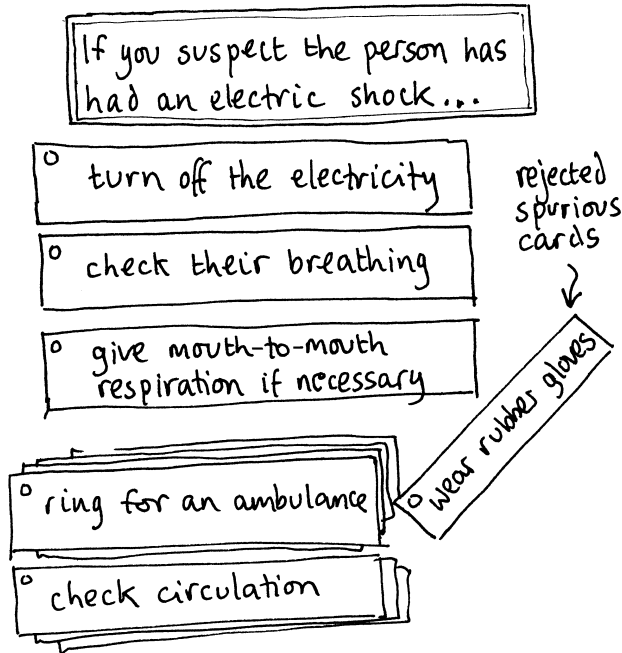 If you suspect the person has
had an electric shock...
turn off the electricity
check their breathing
give mouth-to-mouth
respiration if necessary
rejected
spurious
cards
wear rubber gloves
ring for an ambulance
check circulation